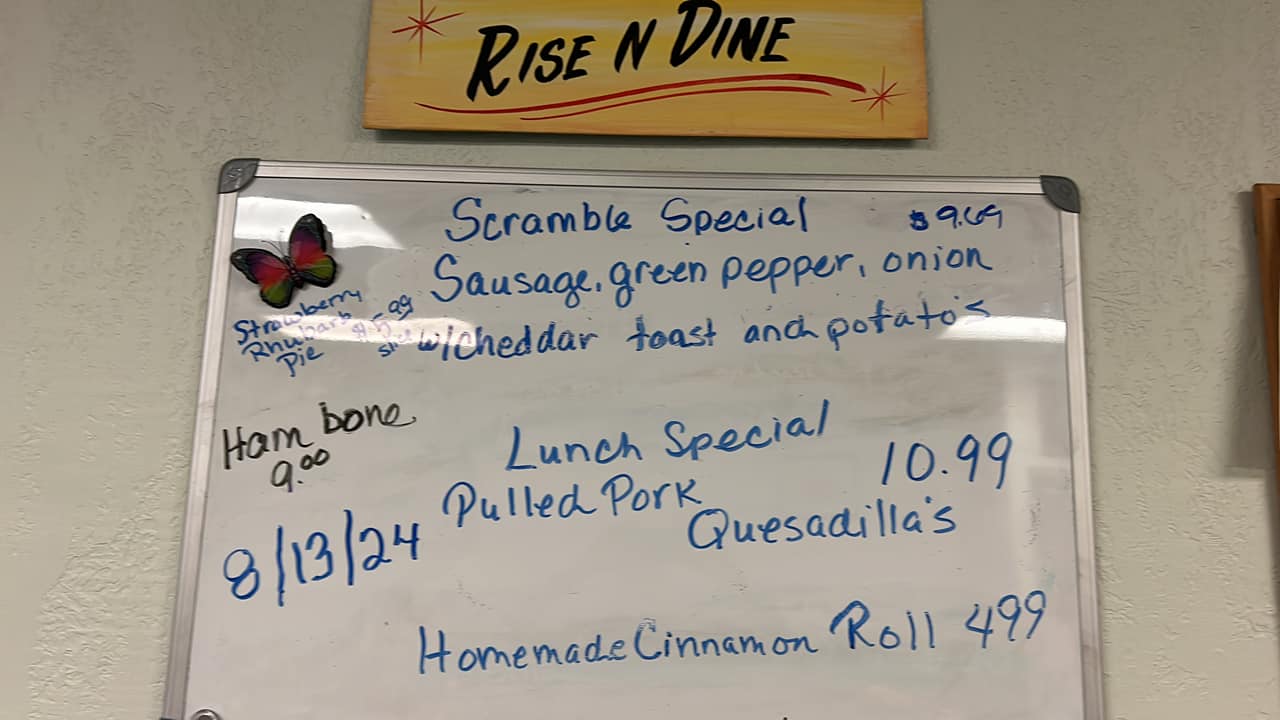 RISE N DINE
Scramble Special $9.69
Sausage, green pepper, onion
w/cheddar toast and potato's
Strawberry
Rhubarb
Pie
Ham bone
9.00
Lunch Special
10.99
Pulled Pork
Quesadilla's
8/13/24
Homemade Cinnamon Roll 499